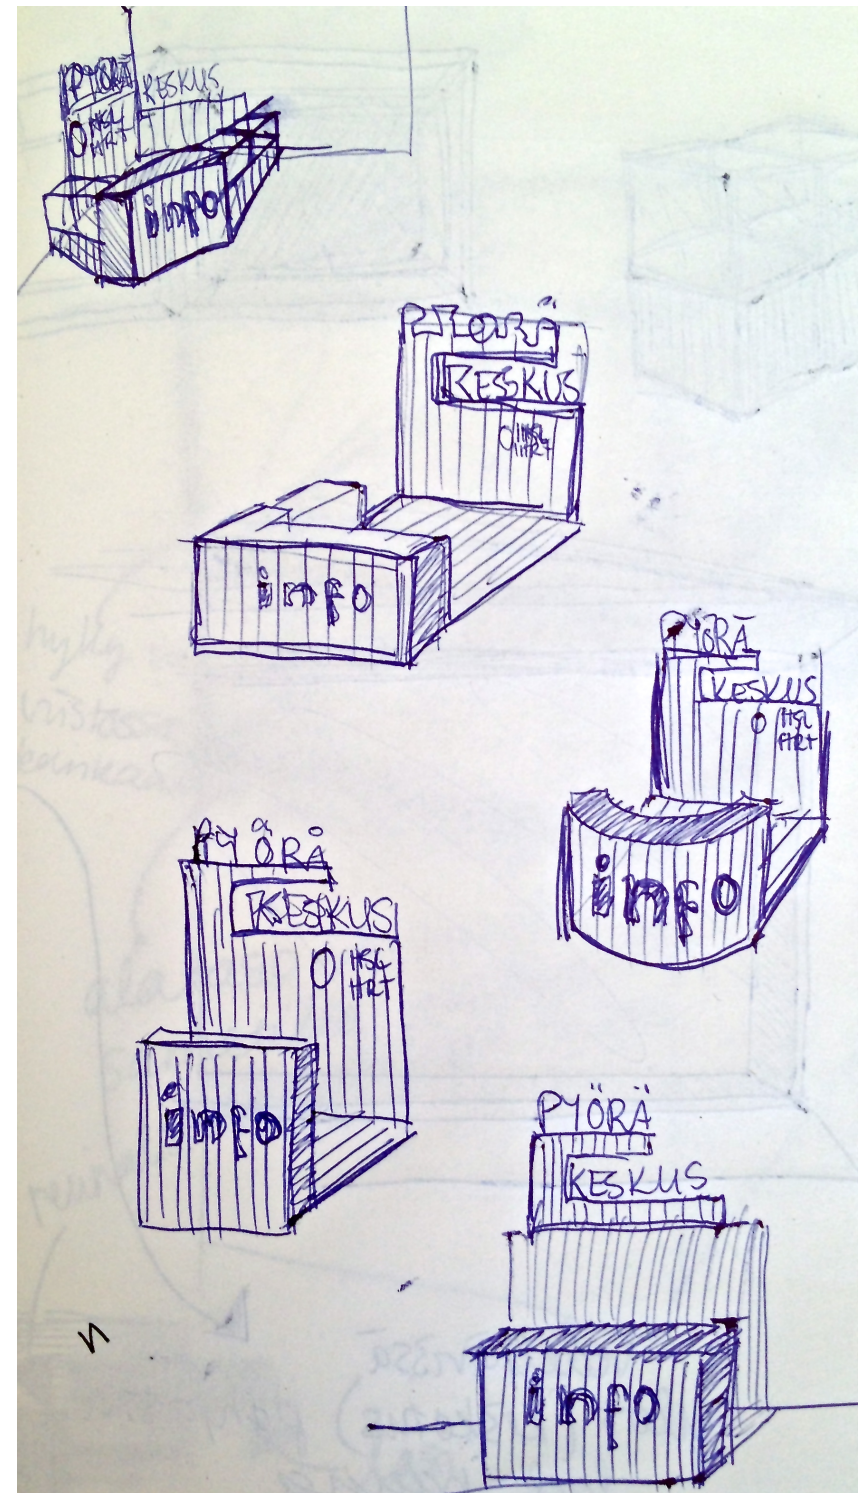 PYÖRÄ
KESKUS
HSL
HRT
info
PYÖRÄ
KESKUS
HSL
HRT
info
PYÖRÄ
KESKUS
HSL
HRT
info
PYÖRÄ
KESKUS
HSL
HRT
info
PYÖRÄ
KESKUS
info
n
hylky